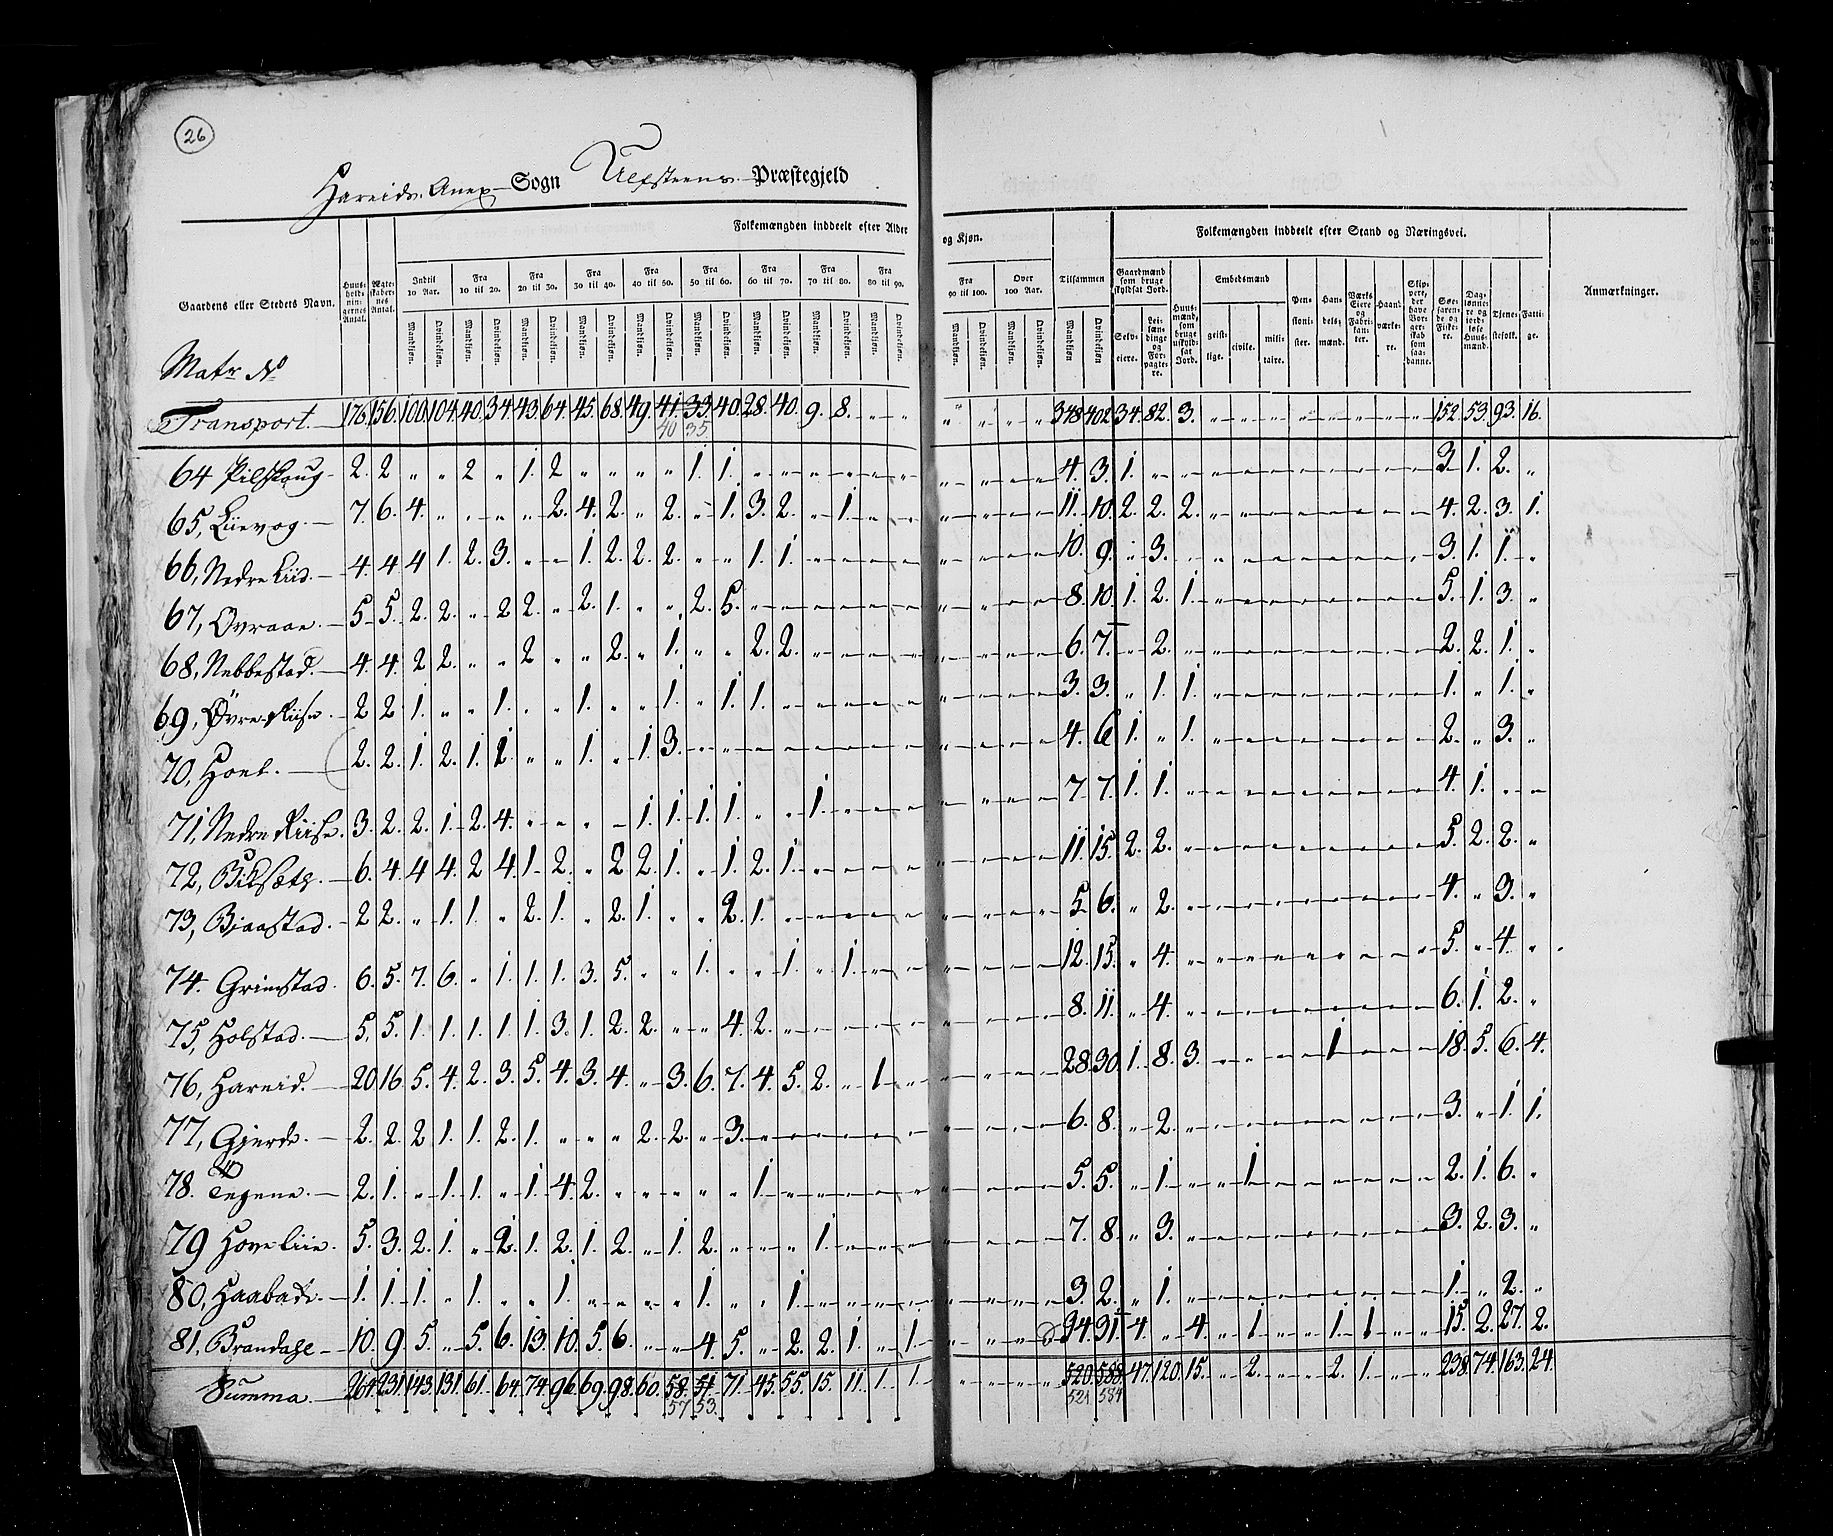 26
Hareids Anex Sogn Ulfsteens Præstegjeld
Folkemængden inddeelt efter Alder og Kjøn. Folkemængden inddeelt efter Stand og Næringsvei.
Gaardens eller Stedets Navn. Huus-hold-nin-gernes Antal. Ægte-skaber-nes Antal. Indtil 10 Aar. Fra 10 til 20. Fra 20 til 30. Fra 30 til 40. Fra 40 til 50. Fra 50 til 60. Fra 60 til 70. Fra 70 til 80. Fra 80 til 90. Fra 90 til 100. Over 100 Aar. Tilsammen Gaardmænd som bruge skyldsat Jord. Huus-mænd, som bruge uskyld-sat Jord. Embedsmænd Pen-sioni-ster. Han-dels-mænd. Værks Eiere og Fabri-kan-ter. Haand-værke-re. Slip-pere, der have Bor-ger-skab som saa-danne. Søe-faren-de og Fiske-re. Dag-lønne-re og jord-løse Huus-mænd. Tjene-stefolk. Fatti-ge. Anmærkninger.
Mandkjøn. Qvindekjøn. Mandkjøn. Qvindekjøn. Mandkjøn. Qvindekjøn. Mandkjøn. Qvindekjøn. Mandkjøn. Qvindekjøn. Mandkjøn. Qvindekjøn. Mandkjøn. Qvindekjøn. Mandkjøn. Qvindekjøn. Mandkjøn. Qvindekjøn. Mandkjøn. Qvindekjøn. Mandkjøn. Qvindekjøn. Mandkjøn Qvindekjøn Selv-eiere. Lei-læn-dinge og For-pagte-re. geist-lige. civile. mili-taire.
Matr No
Transport. 176. 156. 100. 104. 40. 34. 43. 64. 45. 68. 49. 41. 33. 40. 28. 40. 9. 8. „ „ „ „ „ „ 348 402 34. 82. 3. „ „ „ „ „ „ „ „ 152. 53. 93. 16.
40 35.
64 Pilskoug 2. 2. „ „ 2 „ 1. 2 „ „ „ „ 1. 1. „ „ „ „ „ „ „ „ „ „ 4. 3. 1. „ „ „ „ „ „ „ „ „ „ 3. 1. 2. „
65, Liievog. 7. 6. 4. „ „ „ „ 2. 4. 2. „ 2. „ 1. 3. 2. „ 1. „ „ „ „ „ „ 11. 10. 2. 2. 2. „ „ „ „ „ „ „ „ 4. 2. 3. 1.
66, Nedre Liid. 4. 4 4 1. 2. 3. „ „ 1. 2. 2. 2. „ „ 1. 1. „ „ „ „ „ „ „ „ 10. 9. „ 3. „ „ „ „ „ „ „ „ „ 3. 1. 1. „
67, Øvraae. 5. 5. 2. 2. „ 2 2. „ 2. 1. „ „ 2. 5. „ „ „ „ „ „ „ „ „ „ 8. 10. 1. 2. 1. „ „ „ „ „ „ „ „ 5. 1. 3. „
68, Nebbestad. 4. 4. 2 2. „ „ 2 „ „ 2. „ 1. „ „ 2. 2. „ „ „ „ „ „ „ „ 6. 7. „ 2. „ „ „ „ „ „ „ „ „ 2. 2. 1. „
69, Øvre Riise. 2 2. 1. „ „ 1. „ „ 1. „ „ 1. „ 1. 1. „ „ „ „ „ „ „ „ „ 3. 3. „ 1. 1. „ „ „ „ „ „ „ „ 1. „ 1. „
70, Hoel. 2. 2. 1. 2. 1. 1. „ „ 1. „ 1. 3. „ „ „ „ „ „ „ „ „ „ „ „ 4. 6 1. „ 1. „ „ „ „ „ „ „ „ 2. „ 3. „
71, Nedre Riise. 3. 2. 2. 1. 2. 4. „ „ „ „ 1. 1. 1. 1. „ „ 1. „ „ „ „ „ „ „ 7. 7. 1. 1. „ „ „ „ „ „ „ „ „ 4. 1. „ „
72, Bigsæth. 6. 4. 4 4. 2 4. 1. 2. „ 2 2. 1. „ 1. 2. 1. „ „ „ „ „ „ „ „ 11. 15. 2. 2. „ „ „ „ „ „ „ „ „ 5. 2. 2. „
73, Bjaastad. 2 2. „ 1. 1. „ 2. 1. „ 2. 1. „ „ 2. 1. „ „ „ „ „ „ „ „ „ 5. 6. „ 2. „ „ „ „ „ „ „ „ „ 4. „ 3. „
74. Grimstad. 6. 5. 7. 6. „ 1. 1. 1. 3. 5. „ „ 1. „ „ 1. „ 1. „ „ „ „ „ „ 12. 15. „ 4. „ „ „ „ „ „ „ „ „ 5. „ 4. „
75, Holstad. 5. 5. 1. 1. 1. 1. 1. 3. 1. 2. 2. „ „ 4. 2. „ „ „ „ „ „ „ „ „ 8. 11. „ 4. „ „ „ „ „ „ „ „ „ 6. 1. 2. „
76, Hareid. 20. 16. 5. 4. 2. 3. 5. 4. 3. 4. „ 3. 6. 7. 4. 5. 2. „ 1. „ „ „ „ „ 28. 30. 1. 8. 3. „ „ „ „ 1 „ „ „ 18. 5. 6. 4.
77, Gjerde. 2. 2. 2 1. 1. 2. 1. „ „ „ 2. 2. „ 3. „ „ „ „ „ „ „ „ „ „ 6. 8. „ 2. „ „ „ „ „ „ „ „ „ 3. „ 1. 1.
78. Tegene. 2. 1. „ 1. 1. „ 1. 4. 2. „ „ „ „ „ 1. „ „ „ „ „ „ „ „ „ 5. 5. „ 1. „ „ 1. „ „ „ „ „ „ 2. 1. 6. „
79 Hove Liie. 5. 3. 2. 1. „ 2. 1. 2. 1. 2. „ 1. 2. „ „ „ 1. „ „ „ „ „ „ „ 7. 8. „ 3. „ „ „ „ „ „ „ „ „ 3. 2. 3. „
80, Haabakke. 1. 1. 1. „ 1. „ „ 1. „ „ „ „ 1. „ „ 1. „ „ „ „ „ „ „ „ 3. 2. „ 1. „ „ „ „ „ „ „ „ „ 1. „ 2. „
81, Brandahl 10. 9. 5. „ 5. 6. 13. 10. 5. 6. „ „ 4. 5. „ 2. 2. 1. „ 1. „ „ „ 34. 31. 4. „ 4. „ 1. „ „ 1. 1. „ „ 15. 2. 27. 2.
Summa. 264. 231. 143. 131. 61. 64. 74. 96. 69. 98. 60. 58. 51. 71. 45. 55. 15. 11. 1. 1. „ „ „ „ 520 588. 47. 120. 15. „ 2. „ „ 2. 1. „ „ 238. 74. 163. 24.
57 53. 521 584